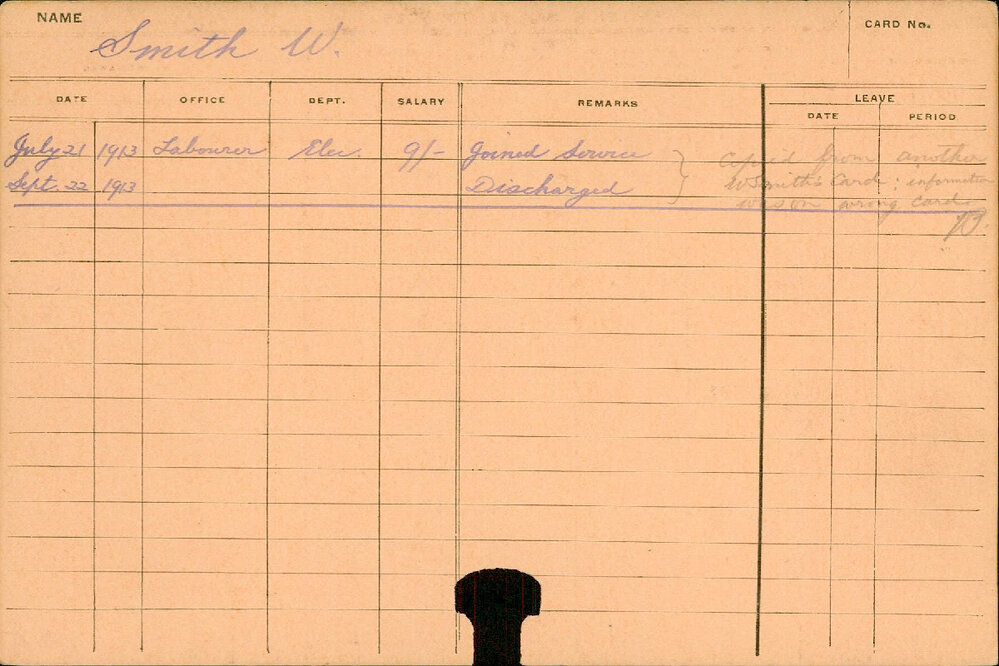 NAME
Smith W.
CARD No.
DATE OFFICE DEPT. SALARY REMARKS LEAVE
DATE PERIOD
July 21 1913 Labourer Elec. 9/- Joined Service } Copied from another
Sept. 22 1913 Discharged } W Smith's Card; information
was on wrong card.